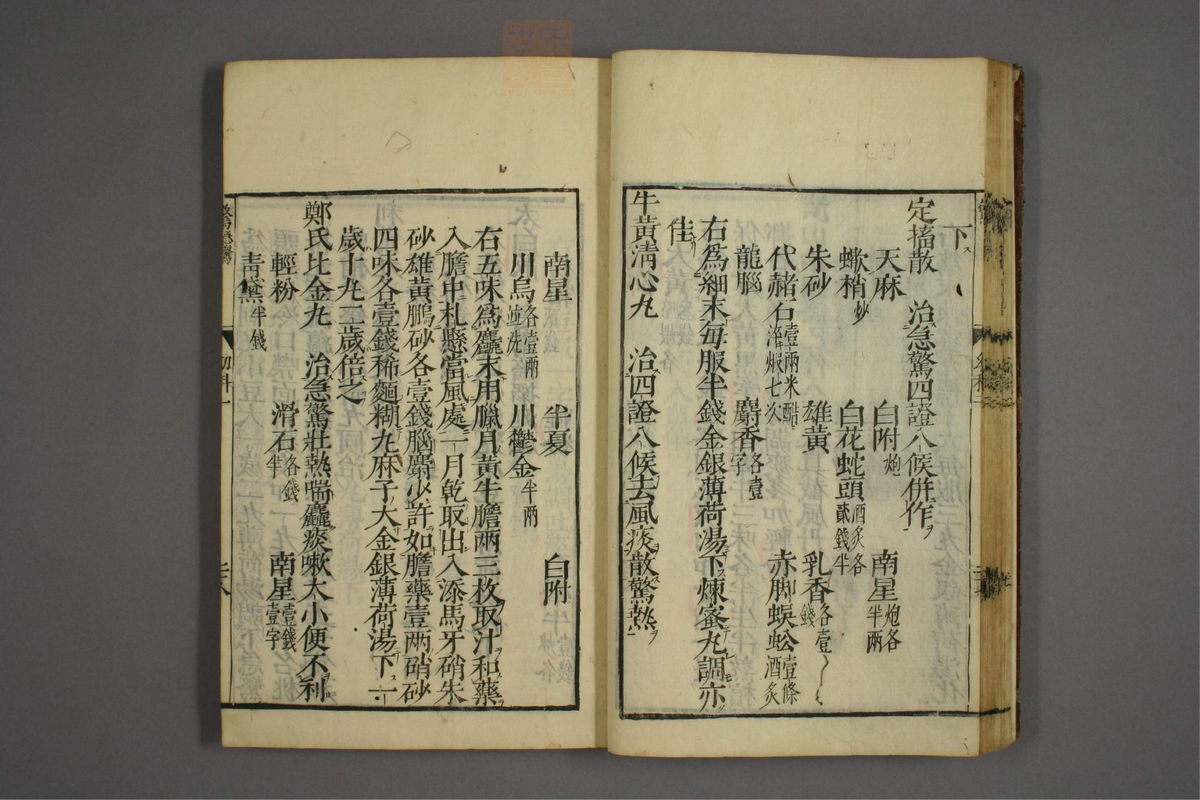 下ス
定搐散　治急驚四證八候併作ヲ
天麻　白附炮　南星炮各半兩
蠍梢炒　白花蛇頭酒炙各貳錢半
朱砂　雄黃　乳香各壹錢
代赭石壹兩米醋淬煆七次　赤脚蜈蚣壹條酒炙
龍腦　麝香各壹字
右爲細末每服半錢金銀薄荷湯下煉蜜丸調亦
佳
牛黃淸心丸　治四證八候去風痰散驚熱
南星　半夏　白附
川烏各壹兩並洗　川鬱金半兩
右五味爲麤末用臘月黃牛膽兩三枚取汁和藥
入膽中札懸當風處一月乾取出入添馬牙硝朱
砂雄黃鵬砂各壹錢腦麝少許如膽藥壹兩硝砂
四味各壹錢稀麵糊丸麻子大金銀薄荷湯下一
歲十丸二歲倍之
鄭氏比金丸　治急驚壯熱喘麤痰嗽大小便不利
輕粉　滑石各錢半　南星壹錢壹字
靑黛半錢